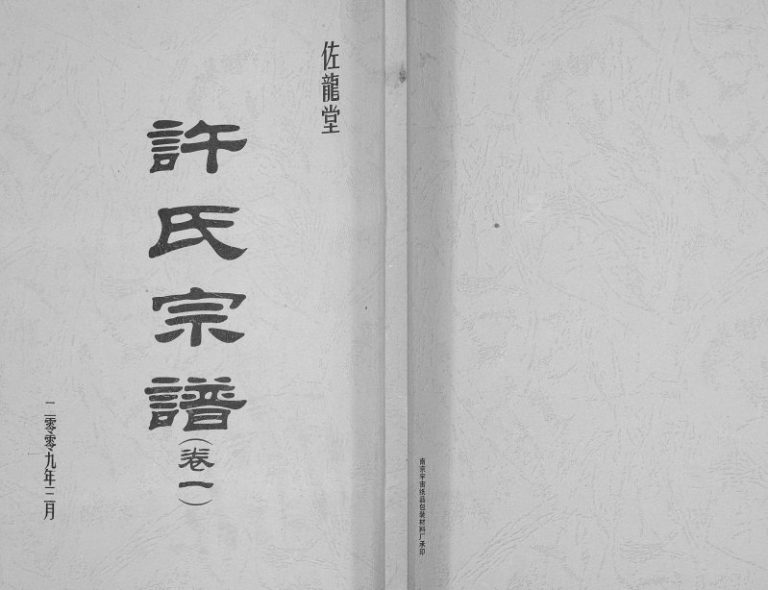 佐龍堂
許氏宗譜
（卷一）
二零零九年三月
南京宇宙纸品包装材料厂承印